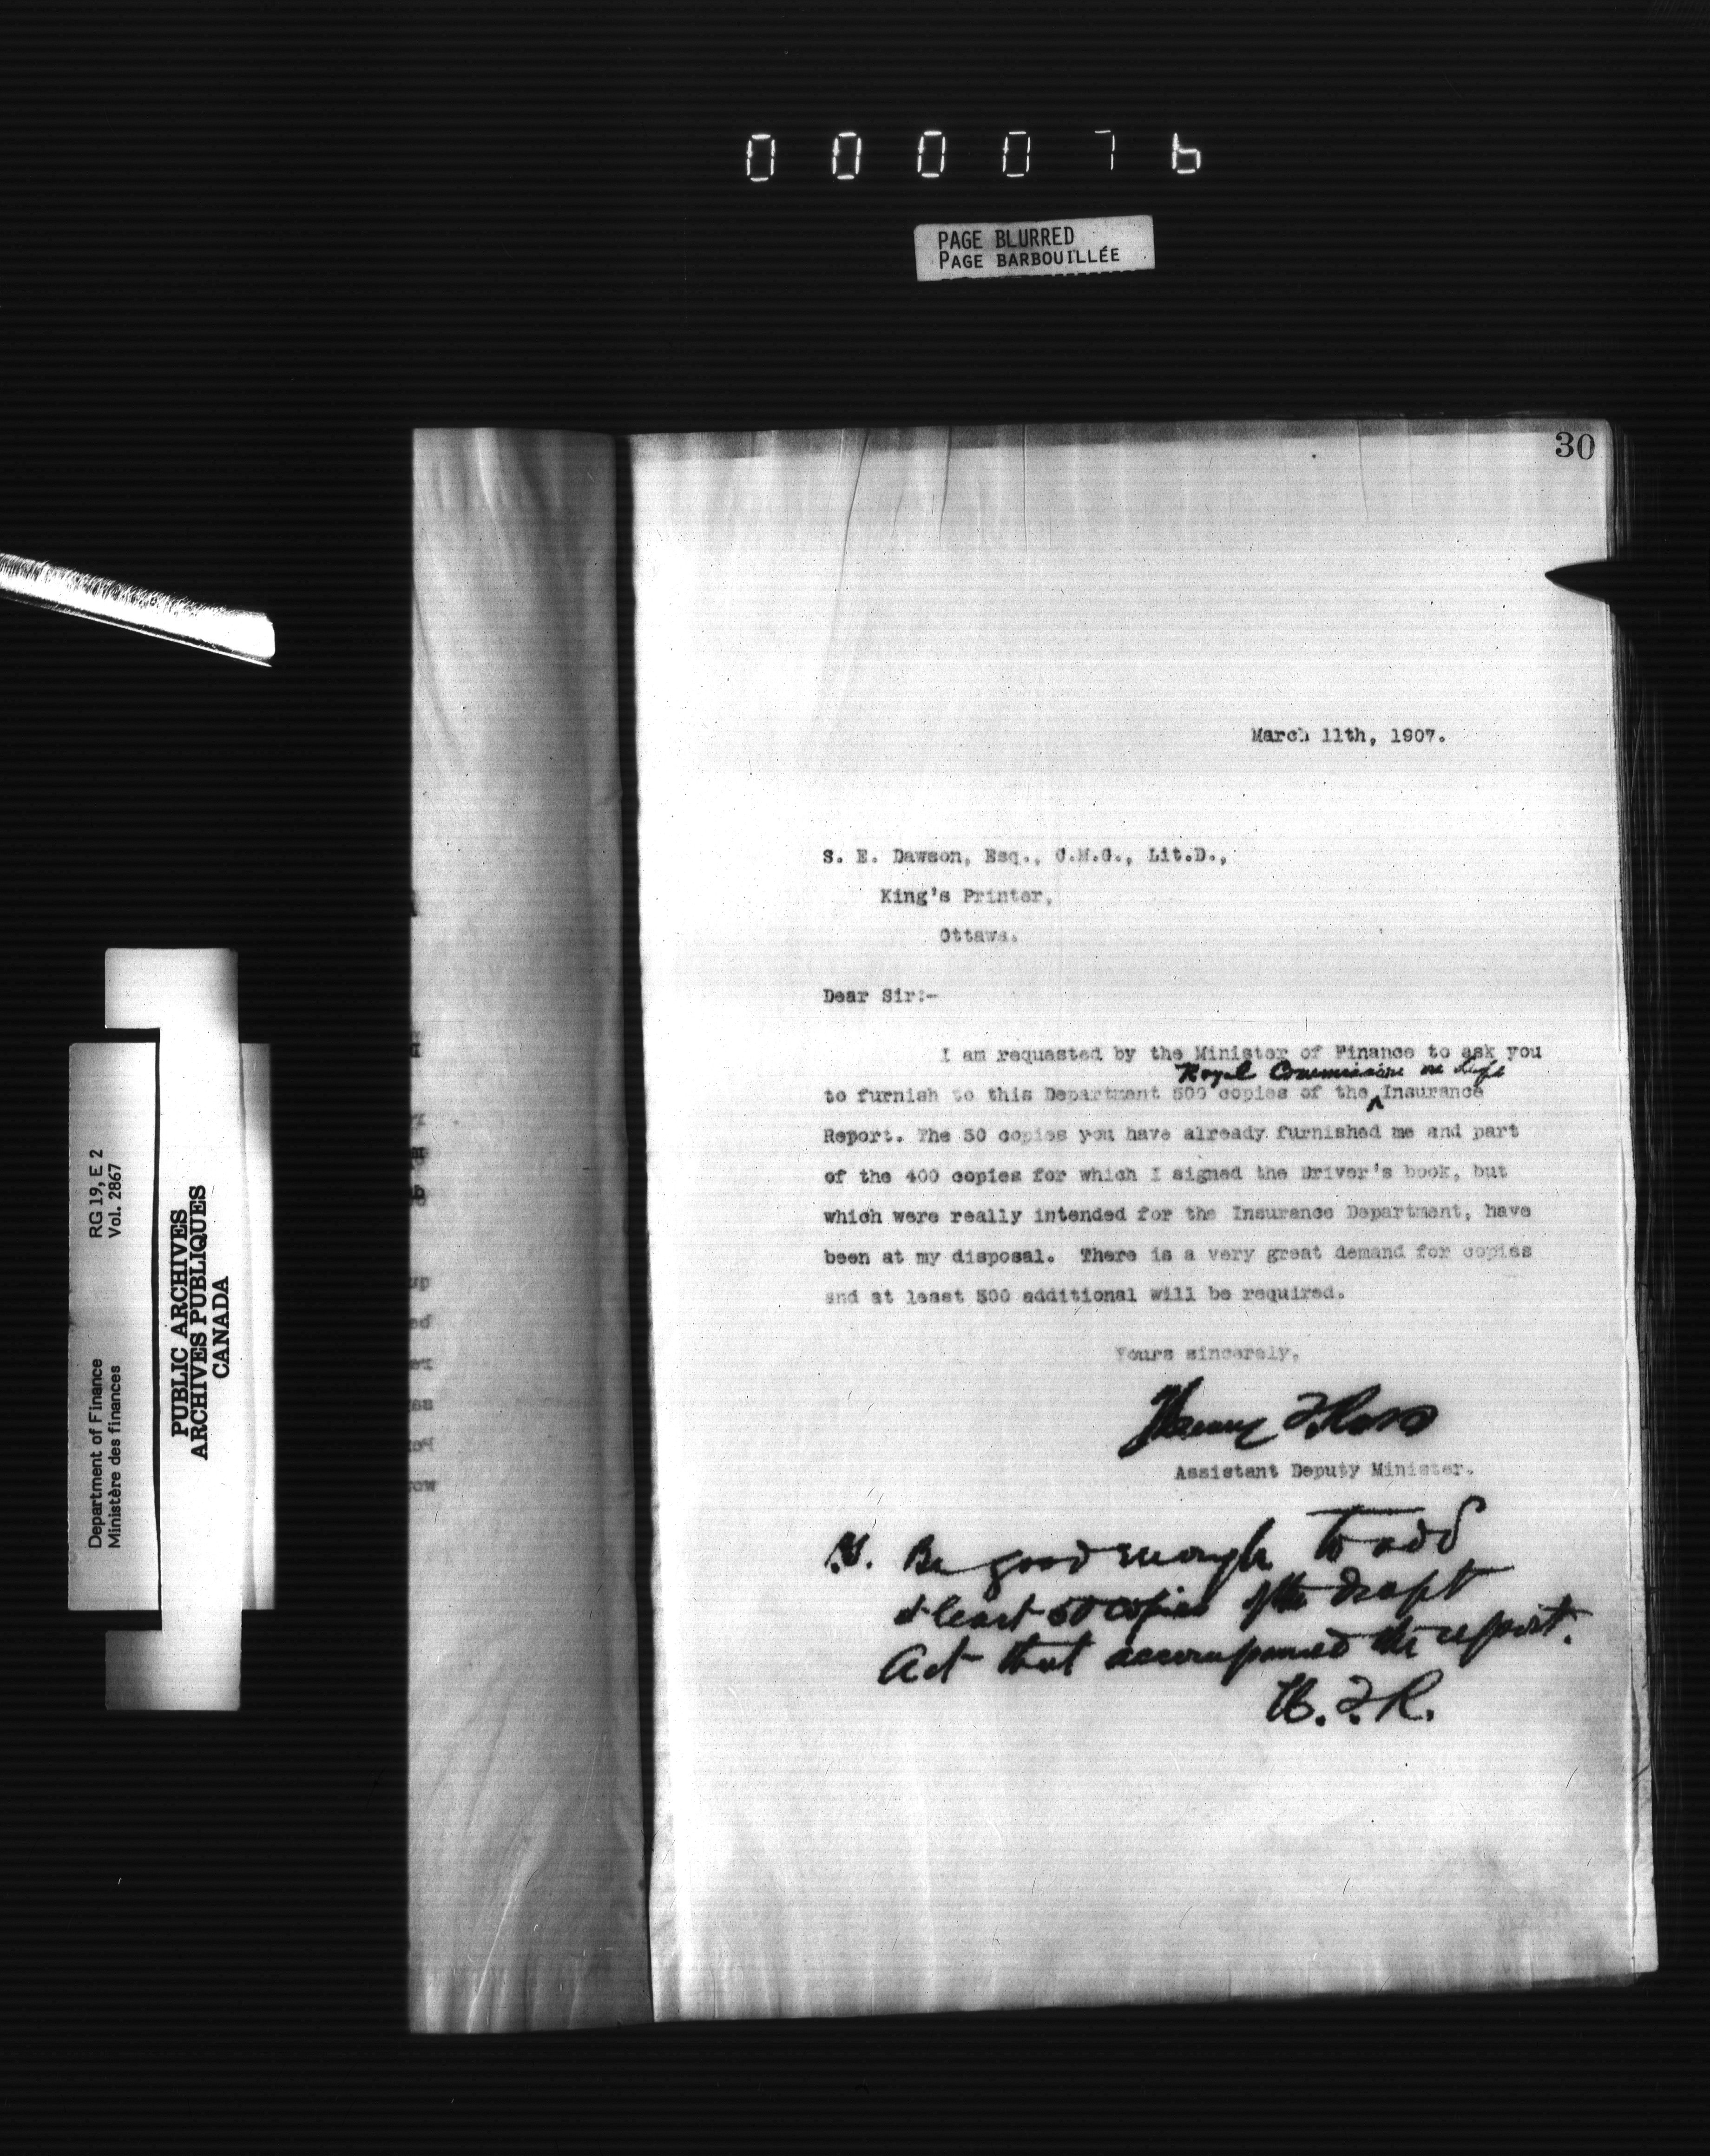 000076
PAGE BLURRED
PAGE BARBOUILLÉE
30
March 11th, 1907.
S. E. Dawson, Esq., C.M.G., Lit.D.,
King's Printer,
Ottawa.
Dear Sir:-
I am requested by the Minister of Finance to ask you
Royal Commission on Life
to furnish to this Department 500 copies of the ^ Insurance
Report. The 50 copies you have already furnished me and part
of the 400 copies for which I signed the Driver's book, but
which were really intended for the Insurance Department, have
been at my disposal. There is a very great demand for copies
and at least 500 additional will be required.
Yours sincerely,
Henry T. Ross
Assistant Deputy Minister.
Be good enough to add
at least 50 copies of the draft
Act that accompanied the report.
H.T.R.
RG 19, E 2
Vol. 2867
Department of Finance
Ministère des finances
PUBLIC ARCHIVES
ARCHIVES PUBLIQUES
CANADA